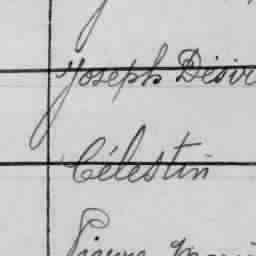 Joseph Désir
Célestin
Pierre Marie